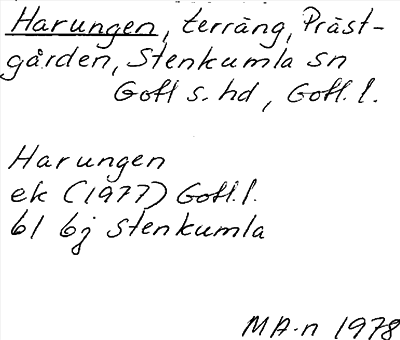 Harungen, terräng, Präst-
gården, Stenkumla sn
Gotl s. hd, Gotl. l.
Harungen
ek (1977) Gotl. l.
bl 6j Stenkumla
MA-n 1978